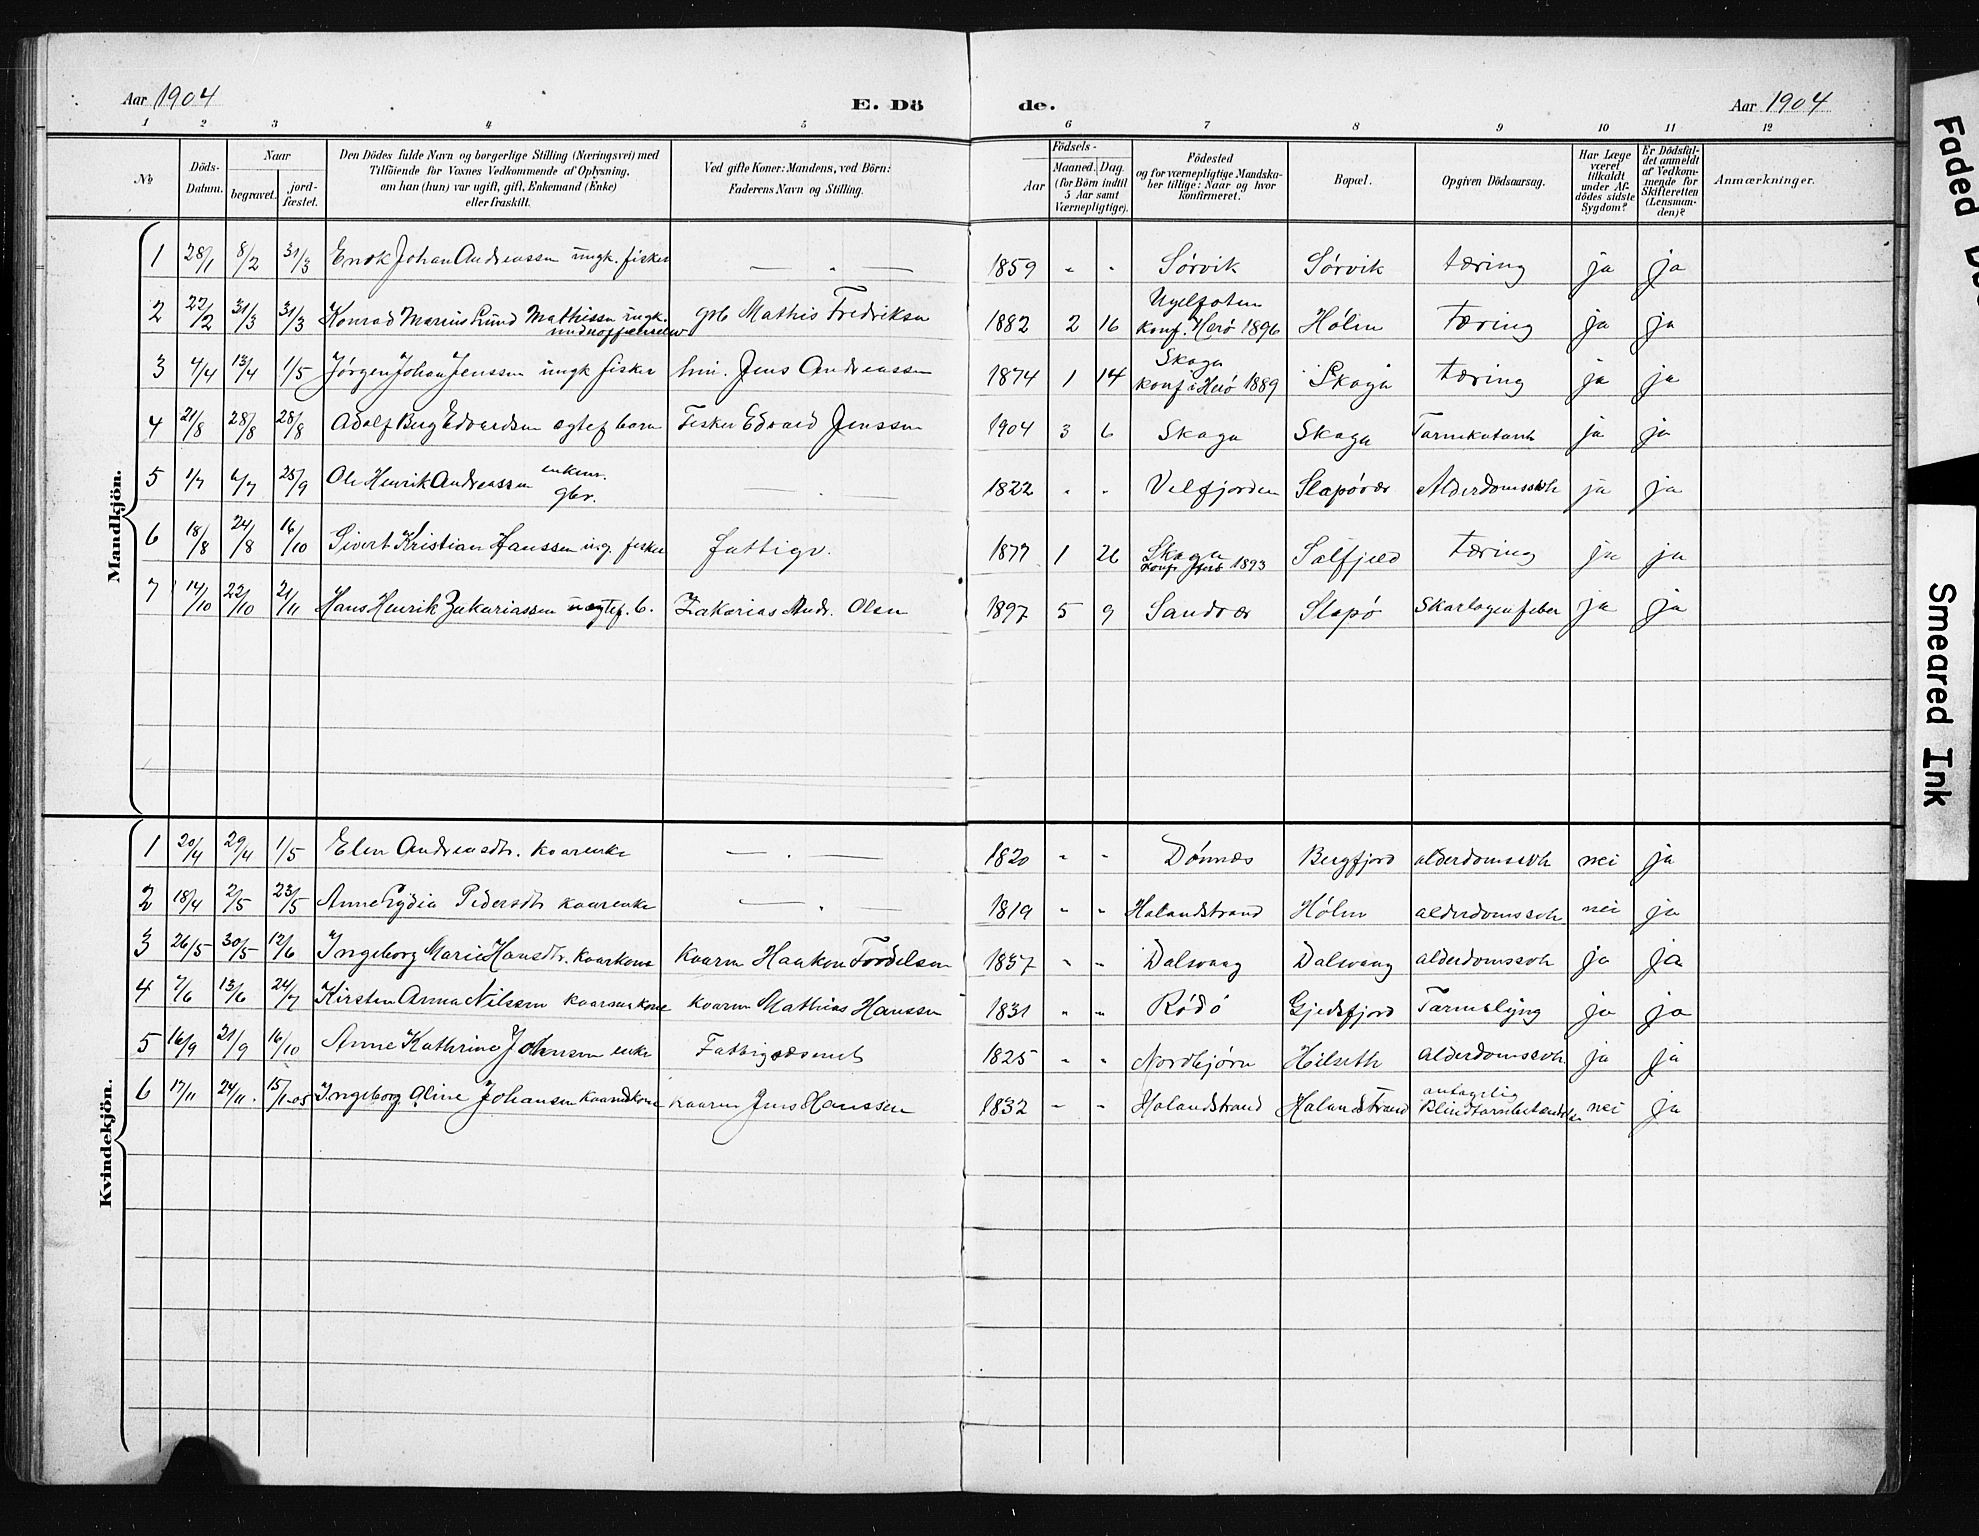 Aar 1904 E. Dö de. Aar 1904
1 2 3 4 5 6 7 8 9 10 11 12
No
Döds-Datum.
Naar
begravet. jord-fæstet.
Den Dödes fulde Navn og borgerlige Stilling (Næringsvei) med
Tilföiende for Voxnes Vedkommende af Oplysning,
om han (hun) var ugift, gift, Enkemand (Enke)
eller fraskilt.
Ved gifte Koner: Mandens, ved Börn:
Faderens Navn og Stilling.
Födsels-
Aar Maaned. Dag.
(for Börn indtil
5 Aar samt
Værnepligtige).
Födested
og for værnepligtige Mandska-
ber tillige: Naar og hvor
konfirmeret.
Bopæl.
Opgiven Dödsaarsag.
Har Læge
været
tilkaldt
under Af-
dödes sidste
Sygdom?
Er Dödsfal-
det anmeldt
af Vedkom-
mende for
Skifteretten
(Lensman-
den)?
Anmærkninger.
Mandkjön.
1 28/1 8/2 31/3 Enok Johan Andreassen ungk. fisker — " — 1859 " " Sørvik Sørvik tæring ja ja
2 22/2 31/3 31/3 Konrad Marius Lund Mathissen ungk. gbr Mathis Fredriksen 1882 2 16 konf. Herø 1896 Holm Tæring ja ja
3 4/4 13/4 1/5 Jørgen Johan Jenssen ungk fisker Jens Andreassen 1874 1 14 Skaga konf i Herø 1889 Skaga tæring ja ja
4 21/8 28/8 28/8 Adolf Berg Edvardsen egtef barn Fisker Edvard Jenssen 1904 3 6 Skaga Skaga Tarmkatarrh ja ja
5 1/7 6/7 25/9 Ole Henrik Andreassen enkem. gbr. — . — 1822 " " Velfjorden Slapøvær Alderdomssvh ja ja
6 18/8 24/8 16/10 Sivert Kristian Hanssen ug. fisker fattigv. 1877 1 26 Skaga konf. 1893 Salfjeld Tæring ja ja
7 14/10 23/10 21/11 Hans Henrik Zakariassen uegtef. b. Zakarias Andr. Olsen 1897 5 9 Sandvær Slapø Skarlagenfeber ja ja
Kvindekjön.
1 20/4 29/4 1/5 Elen Andreasdtr. kaarenke — . — 1820 " " Dønnæs Bergfjord alderdomssvh nei ja
2 18/4 2/5 23/5 Anne Lydia Pedersdtr kaarenke — " — 1819 " " Halandstrand Holm alderdomssvh nei ja
3 26/5 30/5 12/6 Ingeborg Marie Hansdtr. kaarkone kaarm Haaken Tordelsen 1837 " " Dalsvaag Dalsvaag alderdomssvh ja ja
4 7/6 13/6 24/7 Kirsten Anna Nilssen kaarmkone kaarm Mathias Hanssen 1831 " " Rødø Gjedsfjord Tarmslyng ja ja
5 16/9 21/9 16/10 Anne Kathrine Johnsen enke Fattigvæsenet 1825 " " Nordbjørn Hilseth alderdomssvh ja ja
6 17/11 24/11. 15/1-05 Ingeborg Oline Johansen kaarmdkone kaarm Jens Hanssen 1832 " " Halandstrand Halandstrand antagelig Blindtarmbetændelse nei ja
Faded
Smeared Ink